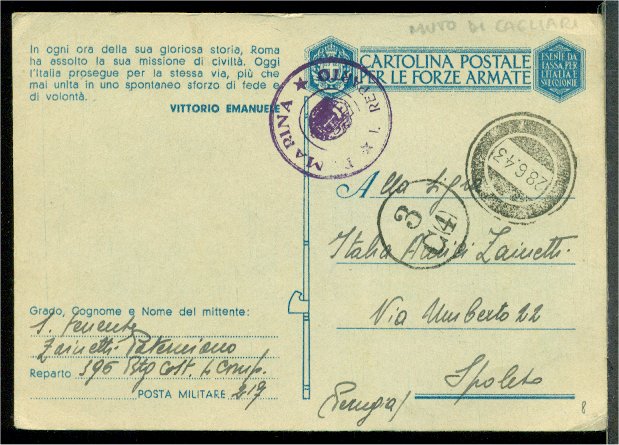 MUTO DI CAGLIARI
In ogni ora della sua gloriosa storia, Roma
ha assolto la sua missione di civiltà. Oggi
l'Italia prosegue per la stessa via, più che
mai unita in uno spontaneo sforzo di fede e
di volontà.
VITTORIO EMANUELE
CARTOLINA POSTALE
PER LE FORZE ARMATE
ESENTE DA
TASSA PER
L'ITALIA E
MARINA ★ REPARTO
28.6.43
3
C4
Alla
Italia Zainetti
Via Umberto 22
Spoleto
(Perugia)
Grado, Cognome e Nome del mittente:
S. Tenente
Zainetti Paterniano
Reparto 396 Btg Cost. 4 Comp.
POSTA MILITARE 217
8